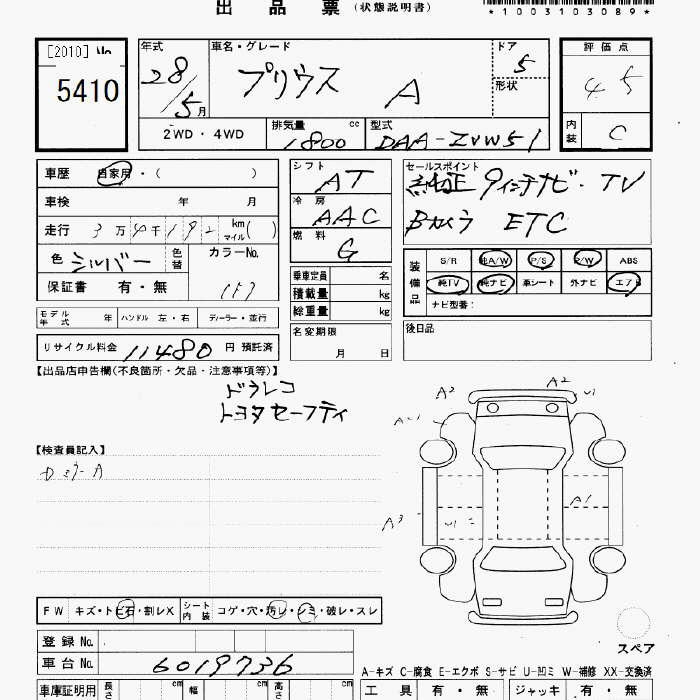 出品票 (状態説明書)
*1003103089*
[2010] No
5410
年式 28/5月
車名・グレード プリウス A
ドア 5
形状
評価点 4.5
内装 C
2WD・4WD
排気量 1800 cc
型式 DAA-ZVW51
車歴 自家用・( )
車検 年 月
走行 3万4千192 km マイル( )
色 シルバー 色替
カラーNo.
保証書 有・無
シフト AT
冷房 AAC
燃料 G
乗車定員 名
積載量 kg
総重量 kg
セールスポイント 純正9インチナビ・TV
Bカメラ ETC
装備品
S/R 純A/W P/S P/W ABS
純TV 純ナビ 革シート 外ナビ エアB
ナビ型番:
モデル年式 年 ハンドル 左・右 ディーラー・並行
名変期限 月 日
後日品
リサイクル料金 11480 円 預託済
【出品店申告欄(不良箇所・欠品・注意事項等)】
ドラレコ
トヨタセーフティ
A2 A2 U1
【検査員記入】
Dミラー A
A1
A3 U1
FW キズ・トビ石・割レX
シート内装 コゲ・穴・汚レ・シミ・破レ・スレ
登録 No.
スペア
車台 No. 6019736
A-キズ C-腐食 E-エクボ S-サビ U-凹ミ W-補修 XX-交換済
車庫証明用 長さ cm 幅 cm 高さ cm
工具 有・無 ジャッキ 有・無